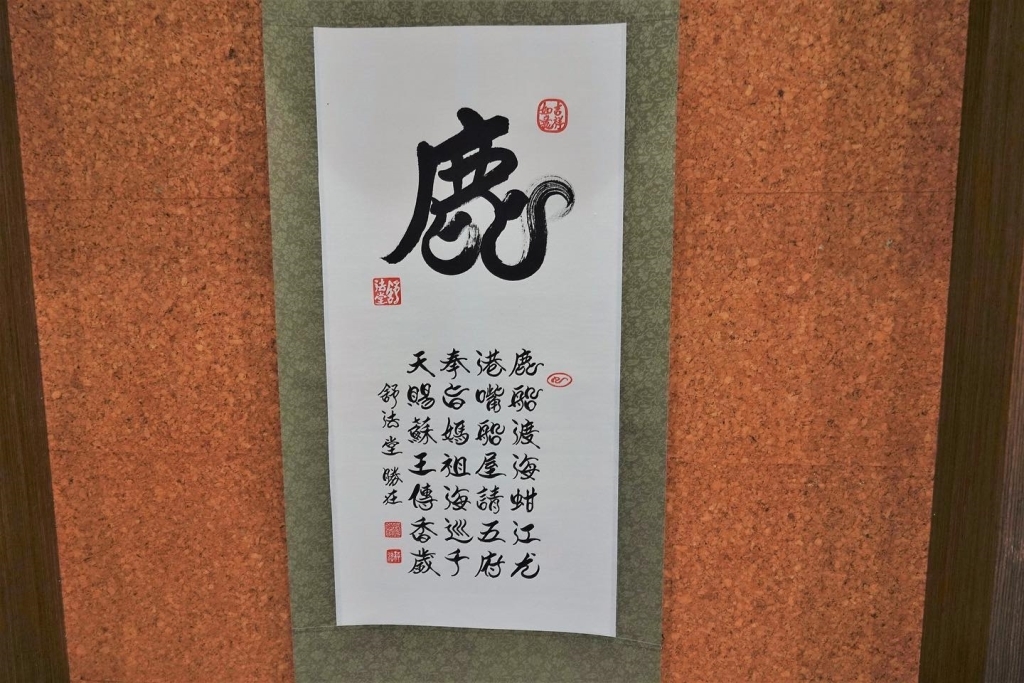 鹿
鹿船渡海蚶江尤
港嘴船屋請五府
奉旨媽祖海巡千
天賜蘇王傳香歲
舒法堂 勝在
舒法堂